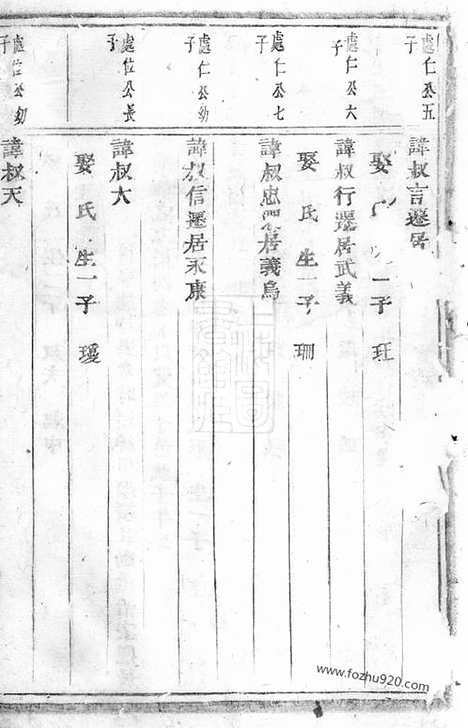 處仁公五子
諱叔言遷居
娶 一子 玨
處仁公六子
諱叔行遷居武義
娶 氏 生一子 珊
處仁公七子
諱叔忠 居義烏
處仁公幼子
諱叔信遷居永康
處位公長子
諱叔大
娶 氏 生一子 瑷
處位公幼子
諱叔天
www.fozhu920.com